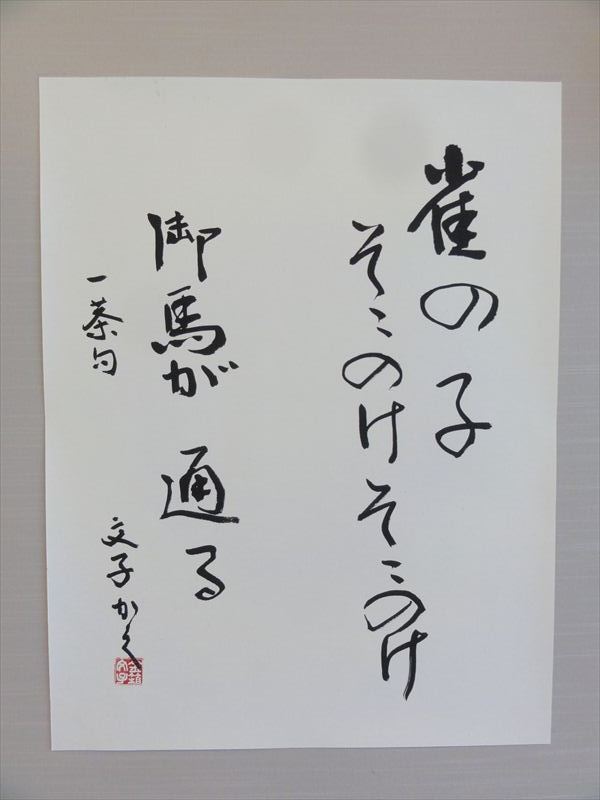 雀の子
そこのけそこのけ
御馬が 通る
一茶句
文子かく